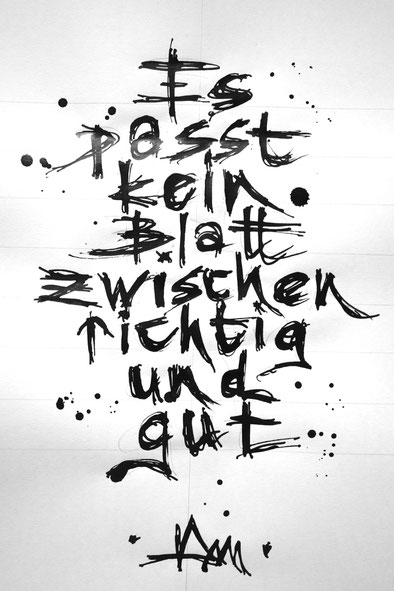 Es
passt
kein
Blatt
zwischen
richtig
und
gut